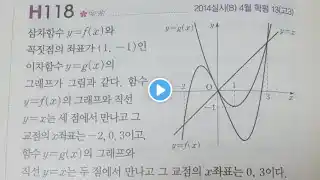 H118
2014실시(B) 4월 학평 13(고3)
삼차함수 y=f(x)와
꼭짓점의 좌표가 (1, -1)인
이차함수 y=g(x)의
그래프가 그림과 같다. 함수
y=f(x)의 그래프와 직선
y=x는 세 점에서 만나고 그
교점의 x좌표는 -2, 0, 3이고,
함수 y=g(x)의 그래프와
직선 y=x는 두 점에서 만나고 그 교점의 x좌표는 0, 3이다.
-2
O
1
3
x
-1
y=f(x)